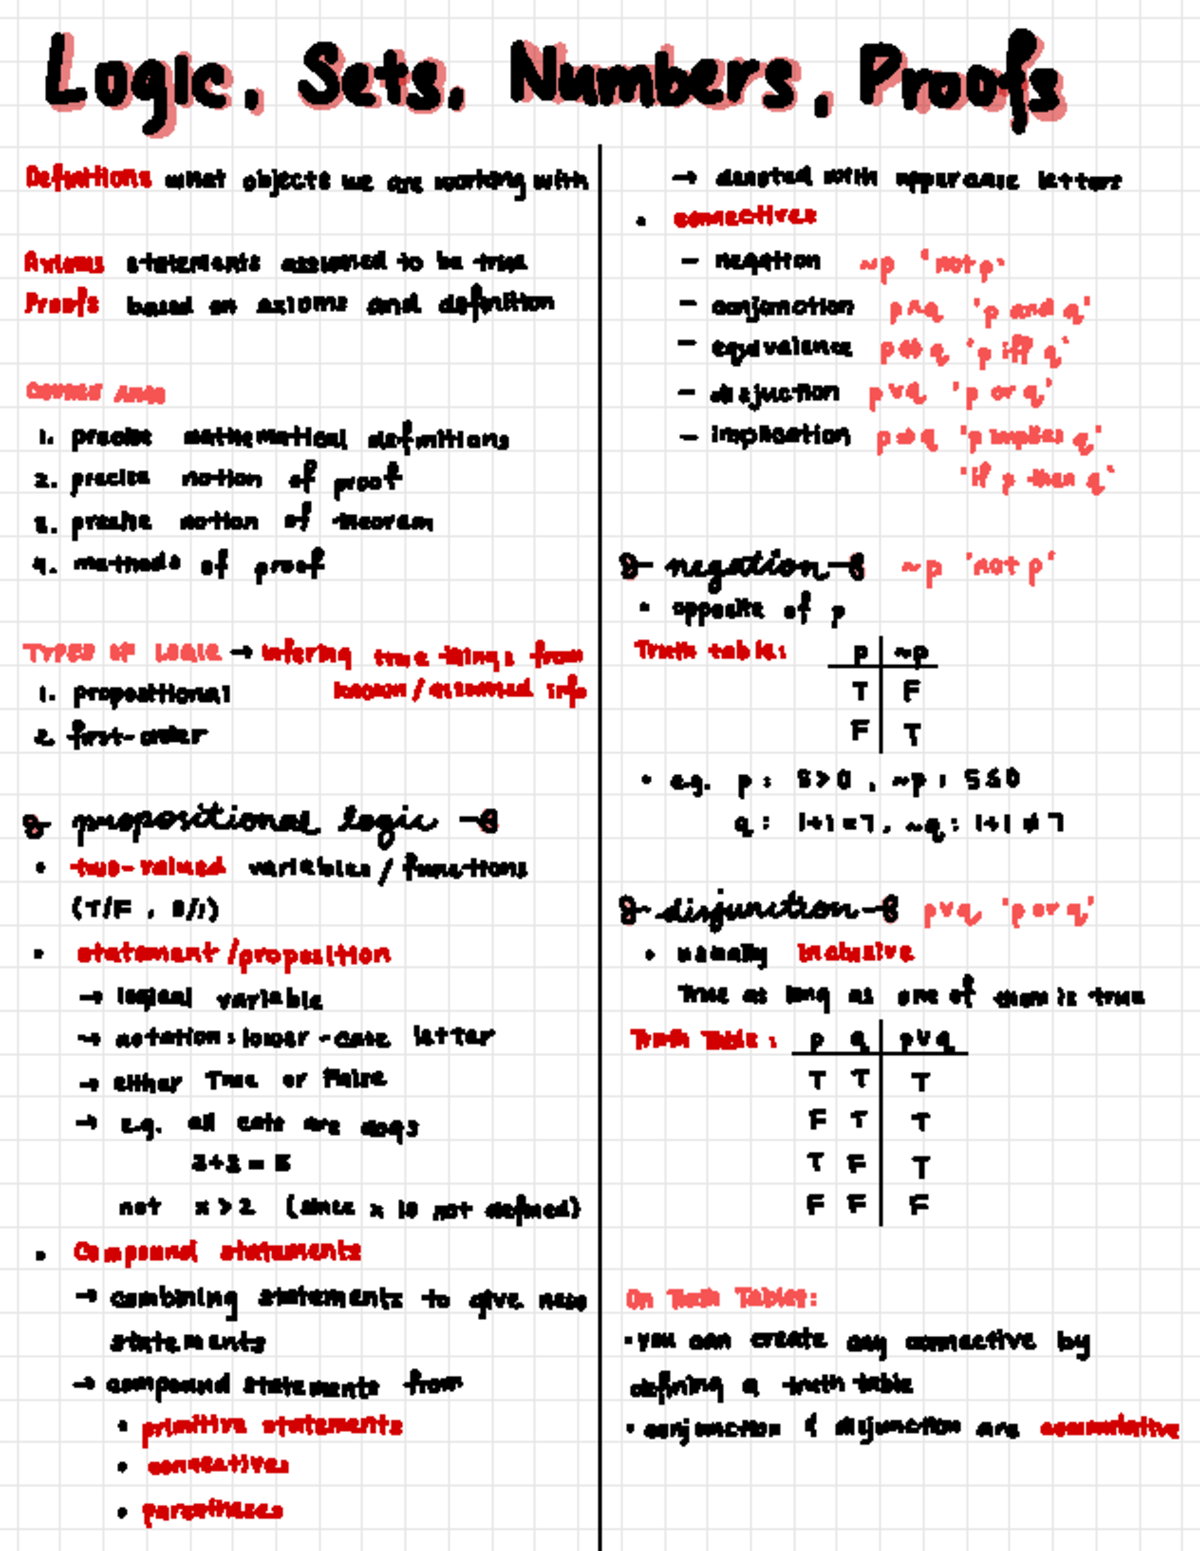 Logic, Sets, Numbers, Proofs
Definitions what objects we are working with
Axioms statements assumed to be true
Proofs based on axioms and definition
COURSE AIMS
1. precise mathematical definitions
2. precise notion of proof
3. precise notion of theorem
4. methods of proof
TYPES OF LOGIC → infering true things from
known / assumed info
1. propositional
2. first-order
propositional logic
• two-valued variables / functions
(T/F , 0/1)
• statement/proposition
→ logical variable
→ notation: lower-case letter
→ either True or False
→ e.g. all cats are dogs
2+2 = 5
not x > 2 (since x is not defined)
• Compound statements
→ combining statements to give new
statements
→ compound statements from
• primitive statements
• connectives
• parentheses
→ denoted with uppercase letters
• connectives
- negation ~p 'not p'
- conjunction p∧q 'p and q'
- equivalence p⇔q 'p iff q'
- disjuction p∨q 'p or q'
- implication p⇒q 'p implies q'
'if p then q'
negation ~p 'not p'
• opposite of p
Truth table: p ~p
T F
F T
• e.g. p: 5>0 , ~p: 5≤0
q: 1+1=7, ~q: 1+1≠7
disjunction p∨q 'p or q'
• usually inclusive
True as long as one of them is true
Truth Table: p q p∨q
T T T
F T T
T F T
F F F
On Truth Tables:
• you can create any connective by
defining a truth table
• conjunction & disjunction are